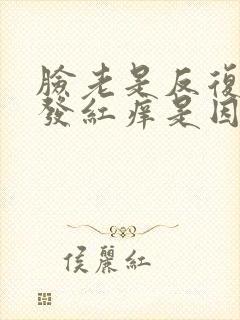 臉老是反復
發紅痒是因
侯麗紅